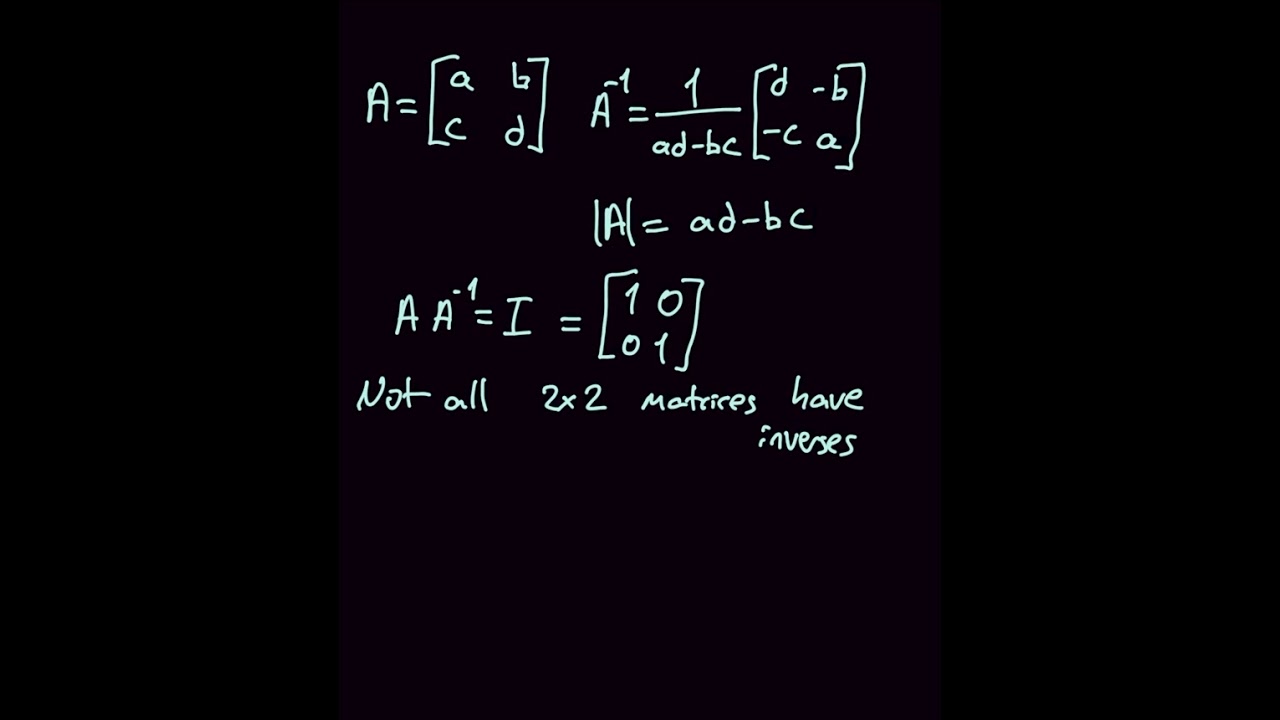 A = [a b c d] A⁻¹ = 1/ad-bc [d -b -c a]
|A| = ad-bc
A A⁻¹ = I = [1 0 0 1]
Not all 2x2 matrices have
inverses